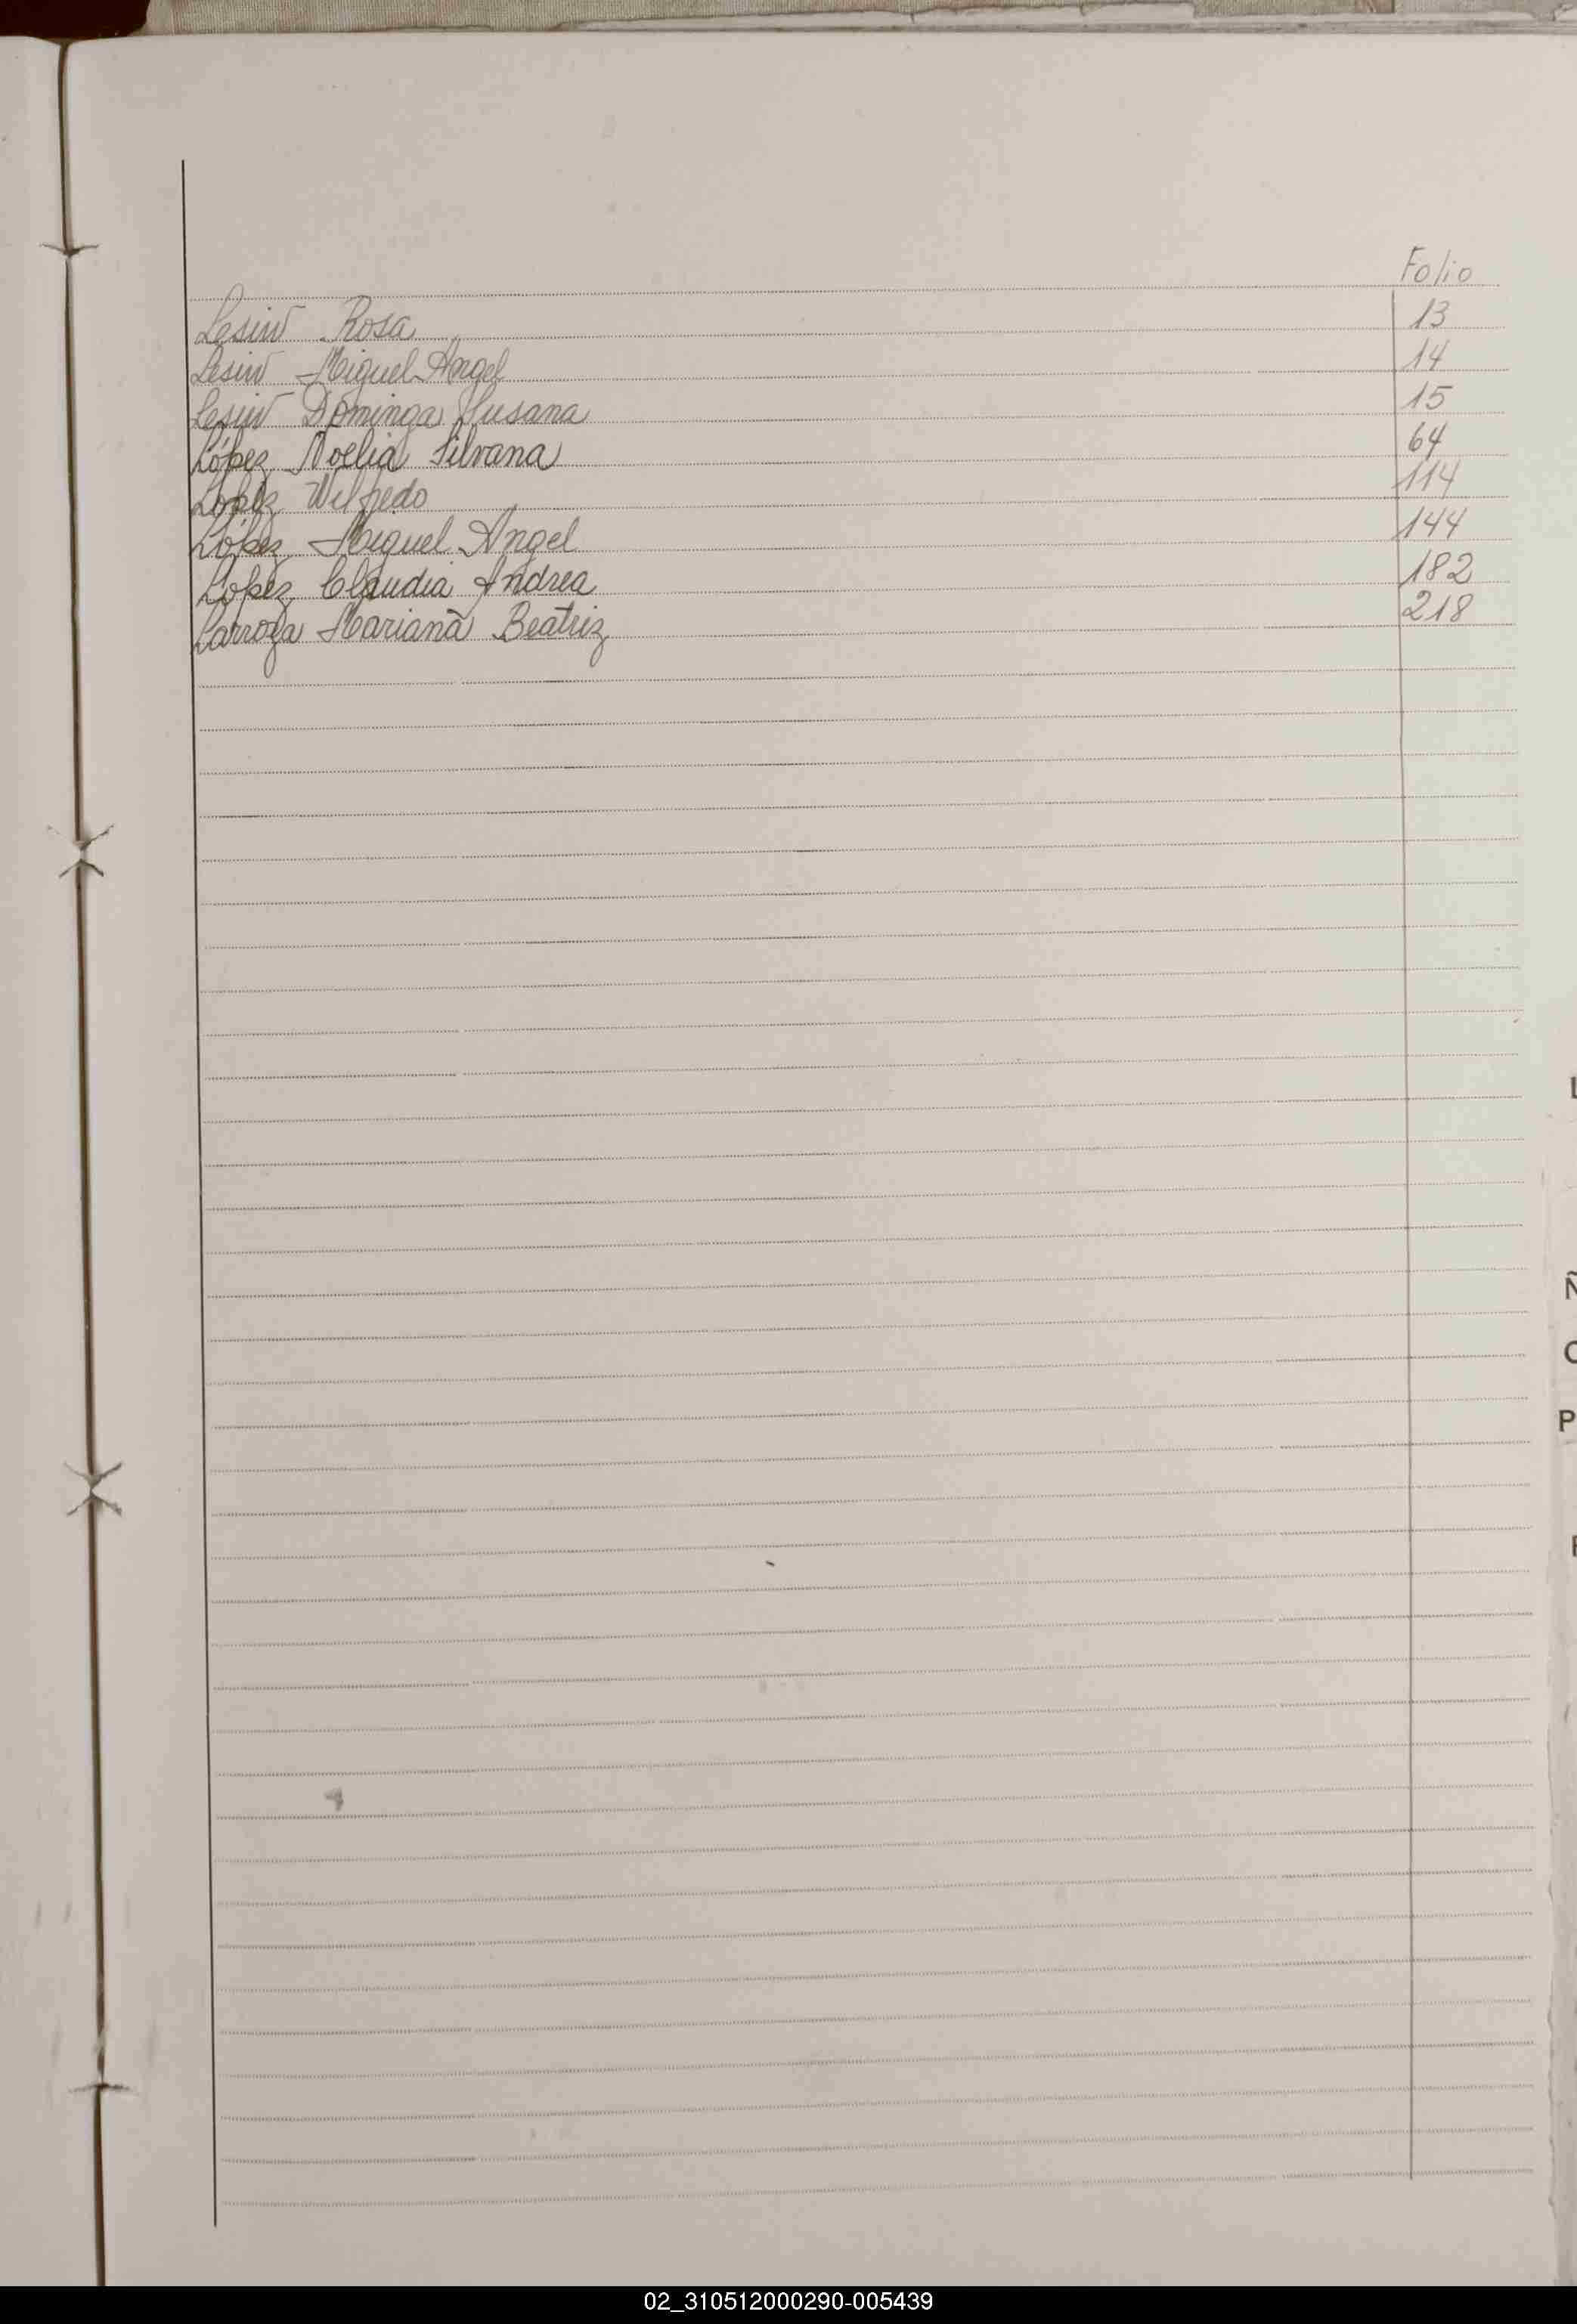 Folio
Lesiw Rosa 13
Lesiw Miguel Angel 14
Lesiw Dominga Susana 15
López Noelia Silvana 64
López Wilfredo 114
López Miguel Angel 144
López Claudia Andrea 182
Larroza Mariana Beatriz 218
L
Ñ
O
P
02_310512000290-005439